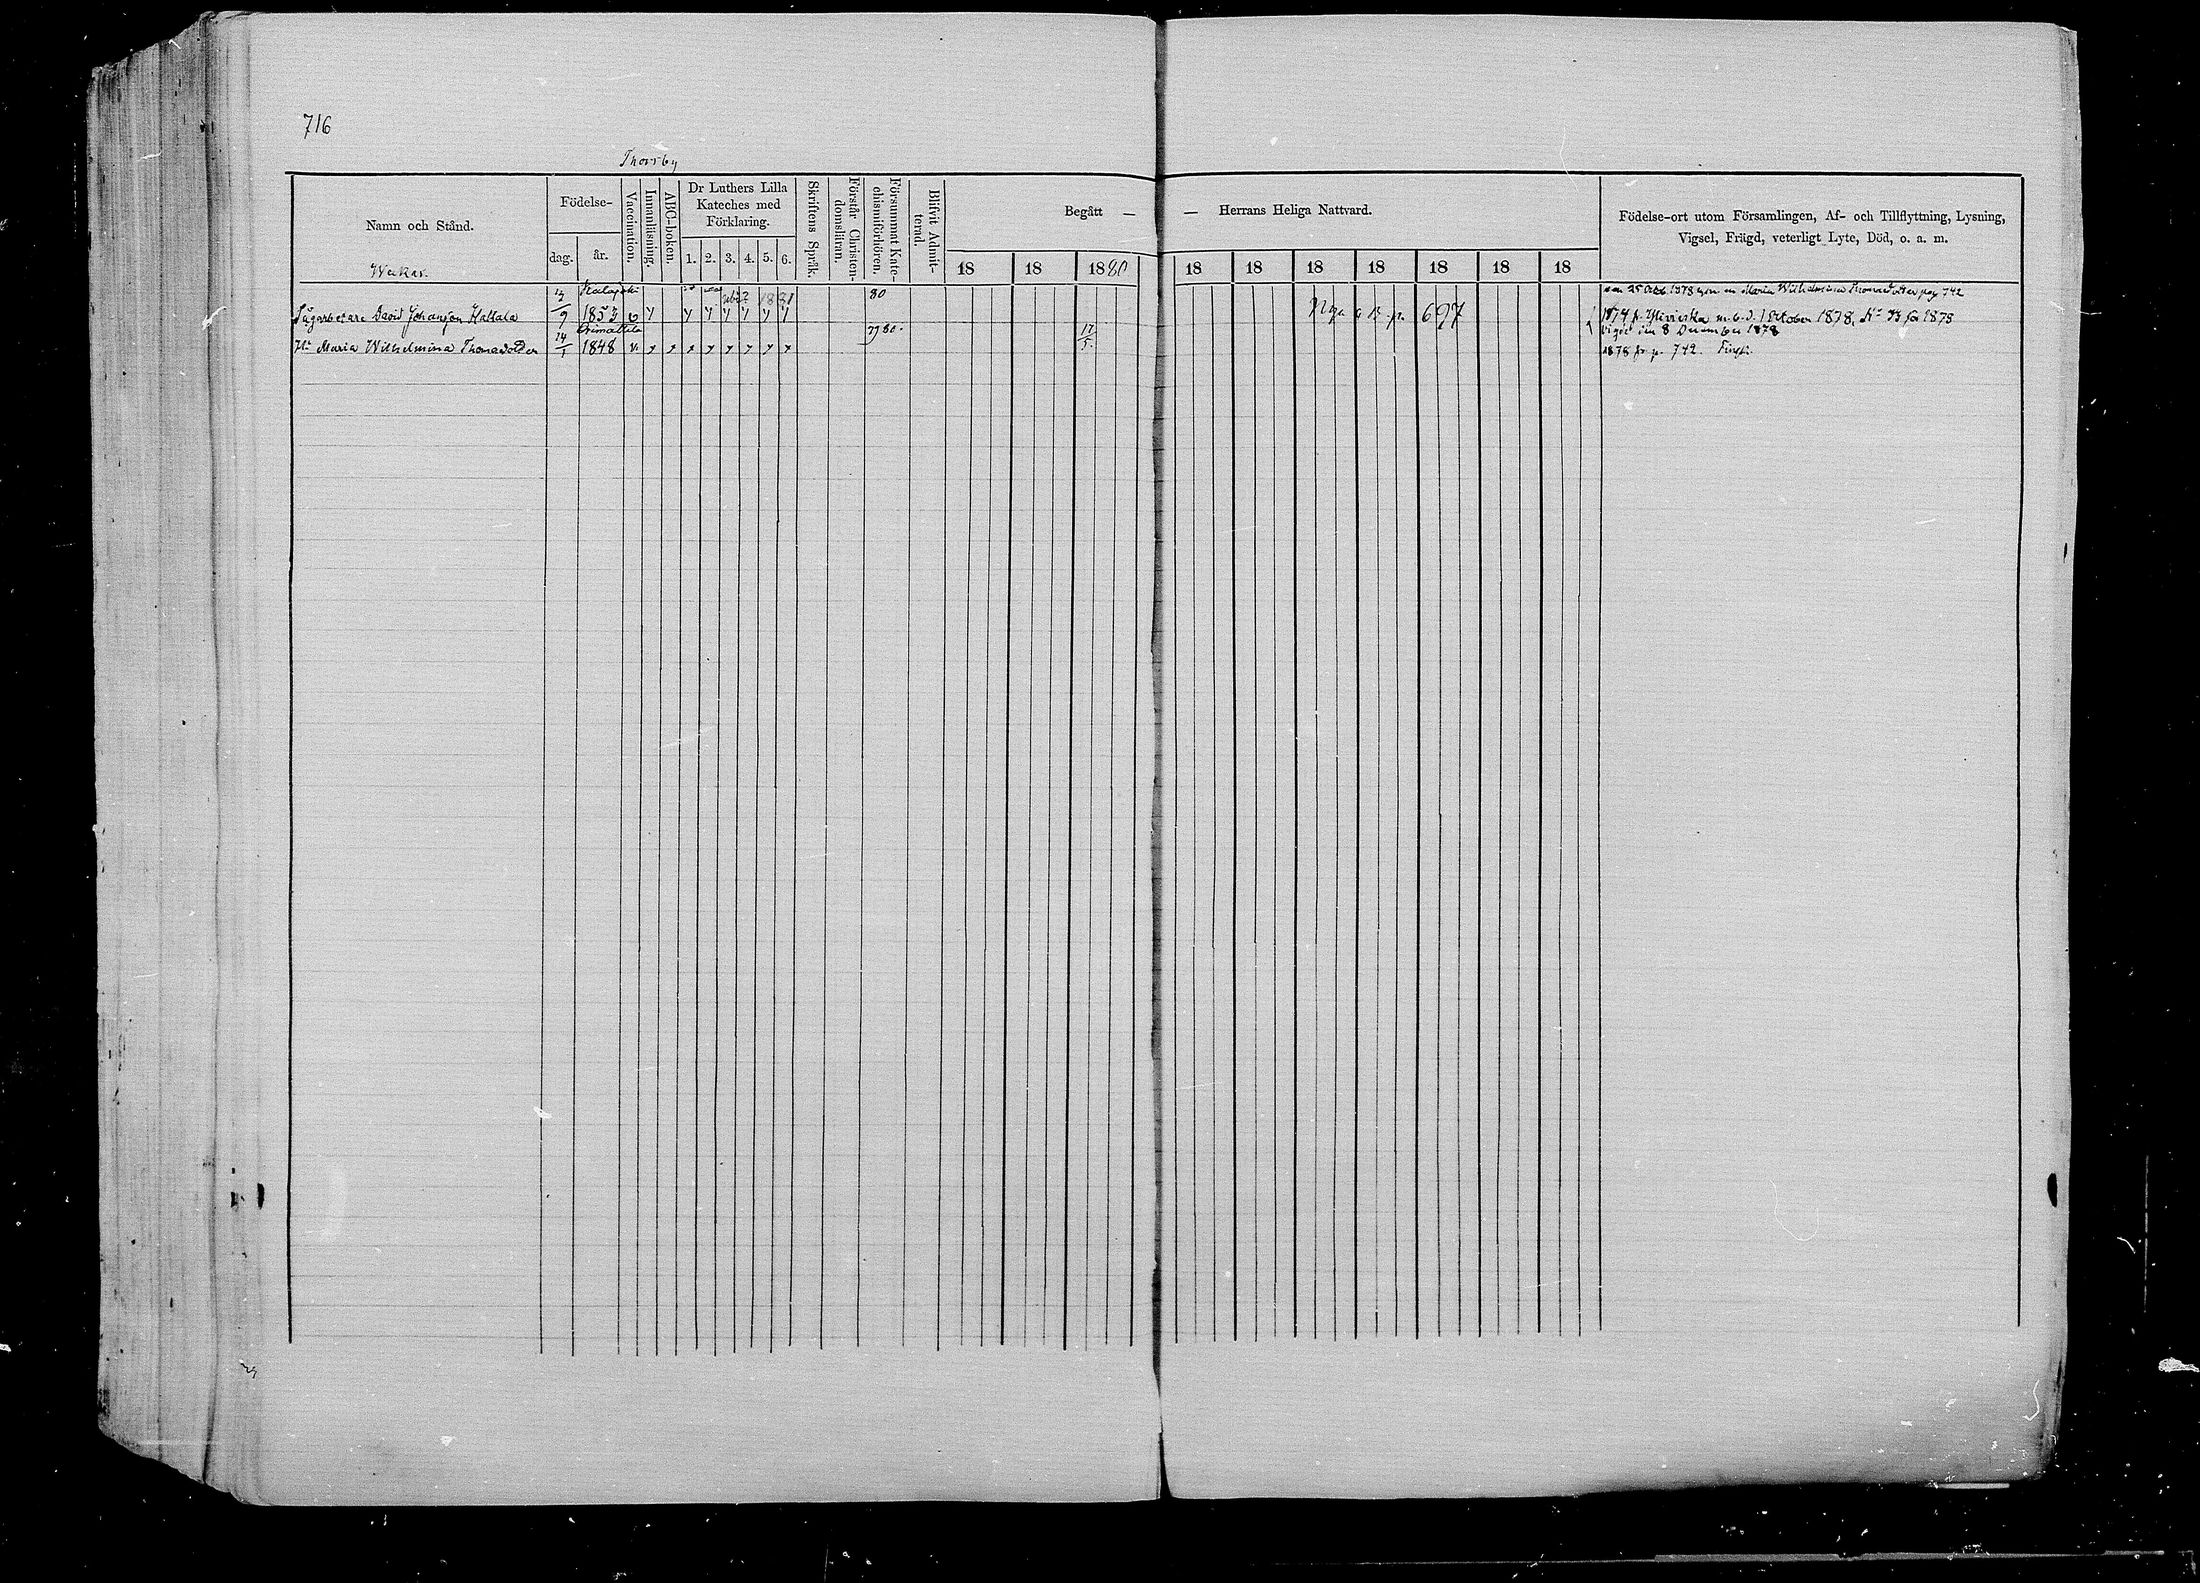 716
Thorsby
Namn och Stånd.
Födelse-
dag. år.
Vaccination.
Innanläsning.
ABC-boken.
Dr Luthers Lilla
Kateches med
Förklaring.
1. 2. 3. 4. 5. 6.
Skriftens Språk.
Förstår Christen-
domsläran.
Försummat Kate-
chismiförhören.
Blifvit Admit-
terad.
Begått —
— Herrans Heliga Nattvard.
18 18 1880 18 18 18 18 18 18 18
Födelse-ort utom Församlingen, Af- och Tillflyttning, Lysning,
Vigsel, Frägd, veterligt Lyte, Död, o. a. m.
Kalajoki
80
25 1878 Maria Wilhelmina pag 742
Sågarbetare David Johansson Kaltala 9 1853 v y y y y y y y
Nya B p. 697
1874 fr. Ylivieska m. a. d. 1 Oktober 1878. No 73 för 1878
Orimattila
80
17
5
8 December 1878
Hu Maria Wilhelmina 14 1 1848 v.
1878 fr p. 742.